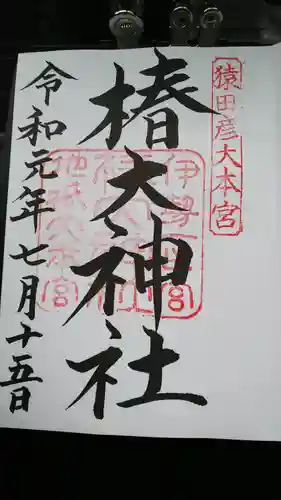 猿田彦大本宮
椿大神社
伊勢一之宮
地祇大本宮
令和元年七月十五日